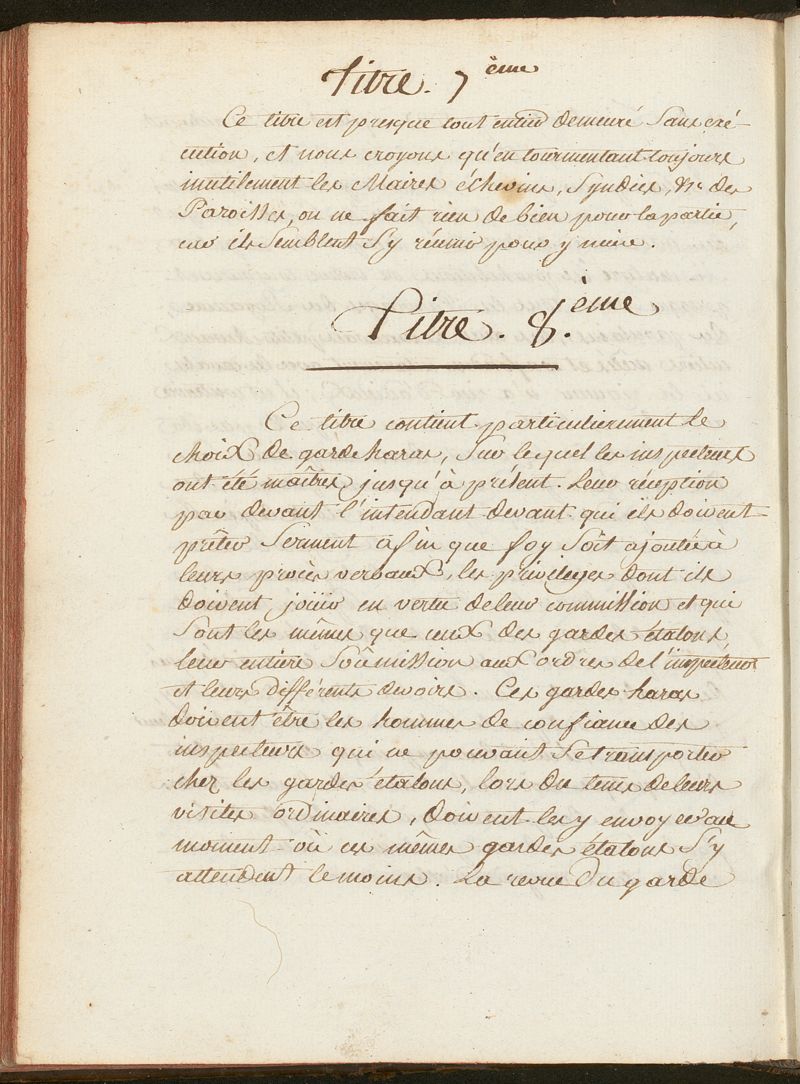 Titre. 7ème
Ce titre est presque tout entier demeuré sans exé-
cution, et nous croyons qu'en tourmentant toujours
inutilement les Maires échevins, Syndics, &c. des
Paroisses, on ne fait rien de bien pour la partie,
car ils semblent s'y réunir pour y nuire.
Titre. 8.ème
Ce titre contient particulierement le
choix de garde haras, sur lequel les inspecteurs
ont été maîtres jusqu'à présent. Leur réception
par devant l'intendant devant qui ils doivent
prêter serment afin que foy soit ajoutée à
leurs procès verbaux, les privileges dont ils
doivent jouir en vertu de leur commission et qui
sont les mêmes que ceux des gardes étalons,
leur entiere soûmission aux ordres de l'inspecteur
et leurs différents devoirs. Ces gardes haras
doivent être les hommes de confiance des
inspecteurs qui ne pouvant se transporter
chez les gardes étalons, lors du tems de leurs
visites ordinaires, doivent les y envoyer au
moment où ces mêmes gardes étalons s'y
attendent le moins. La revue du garde